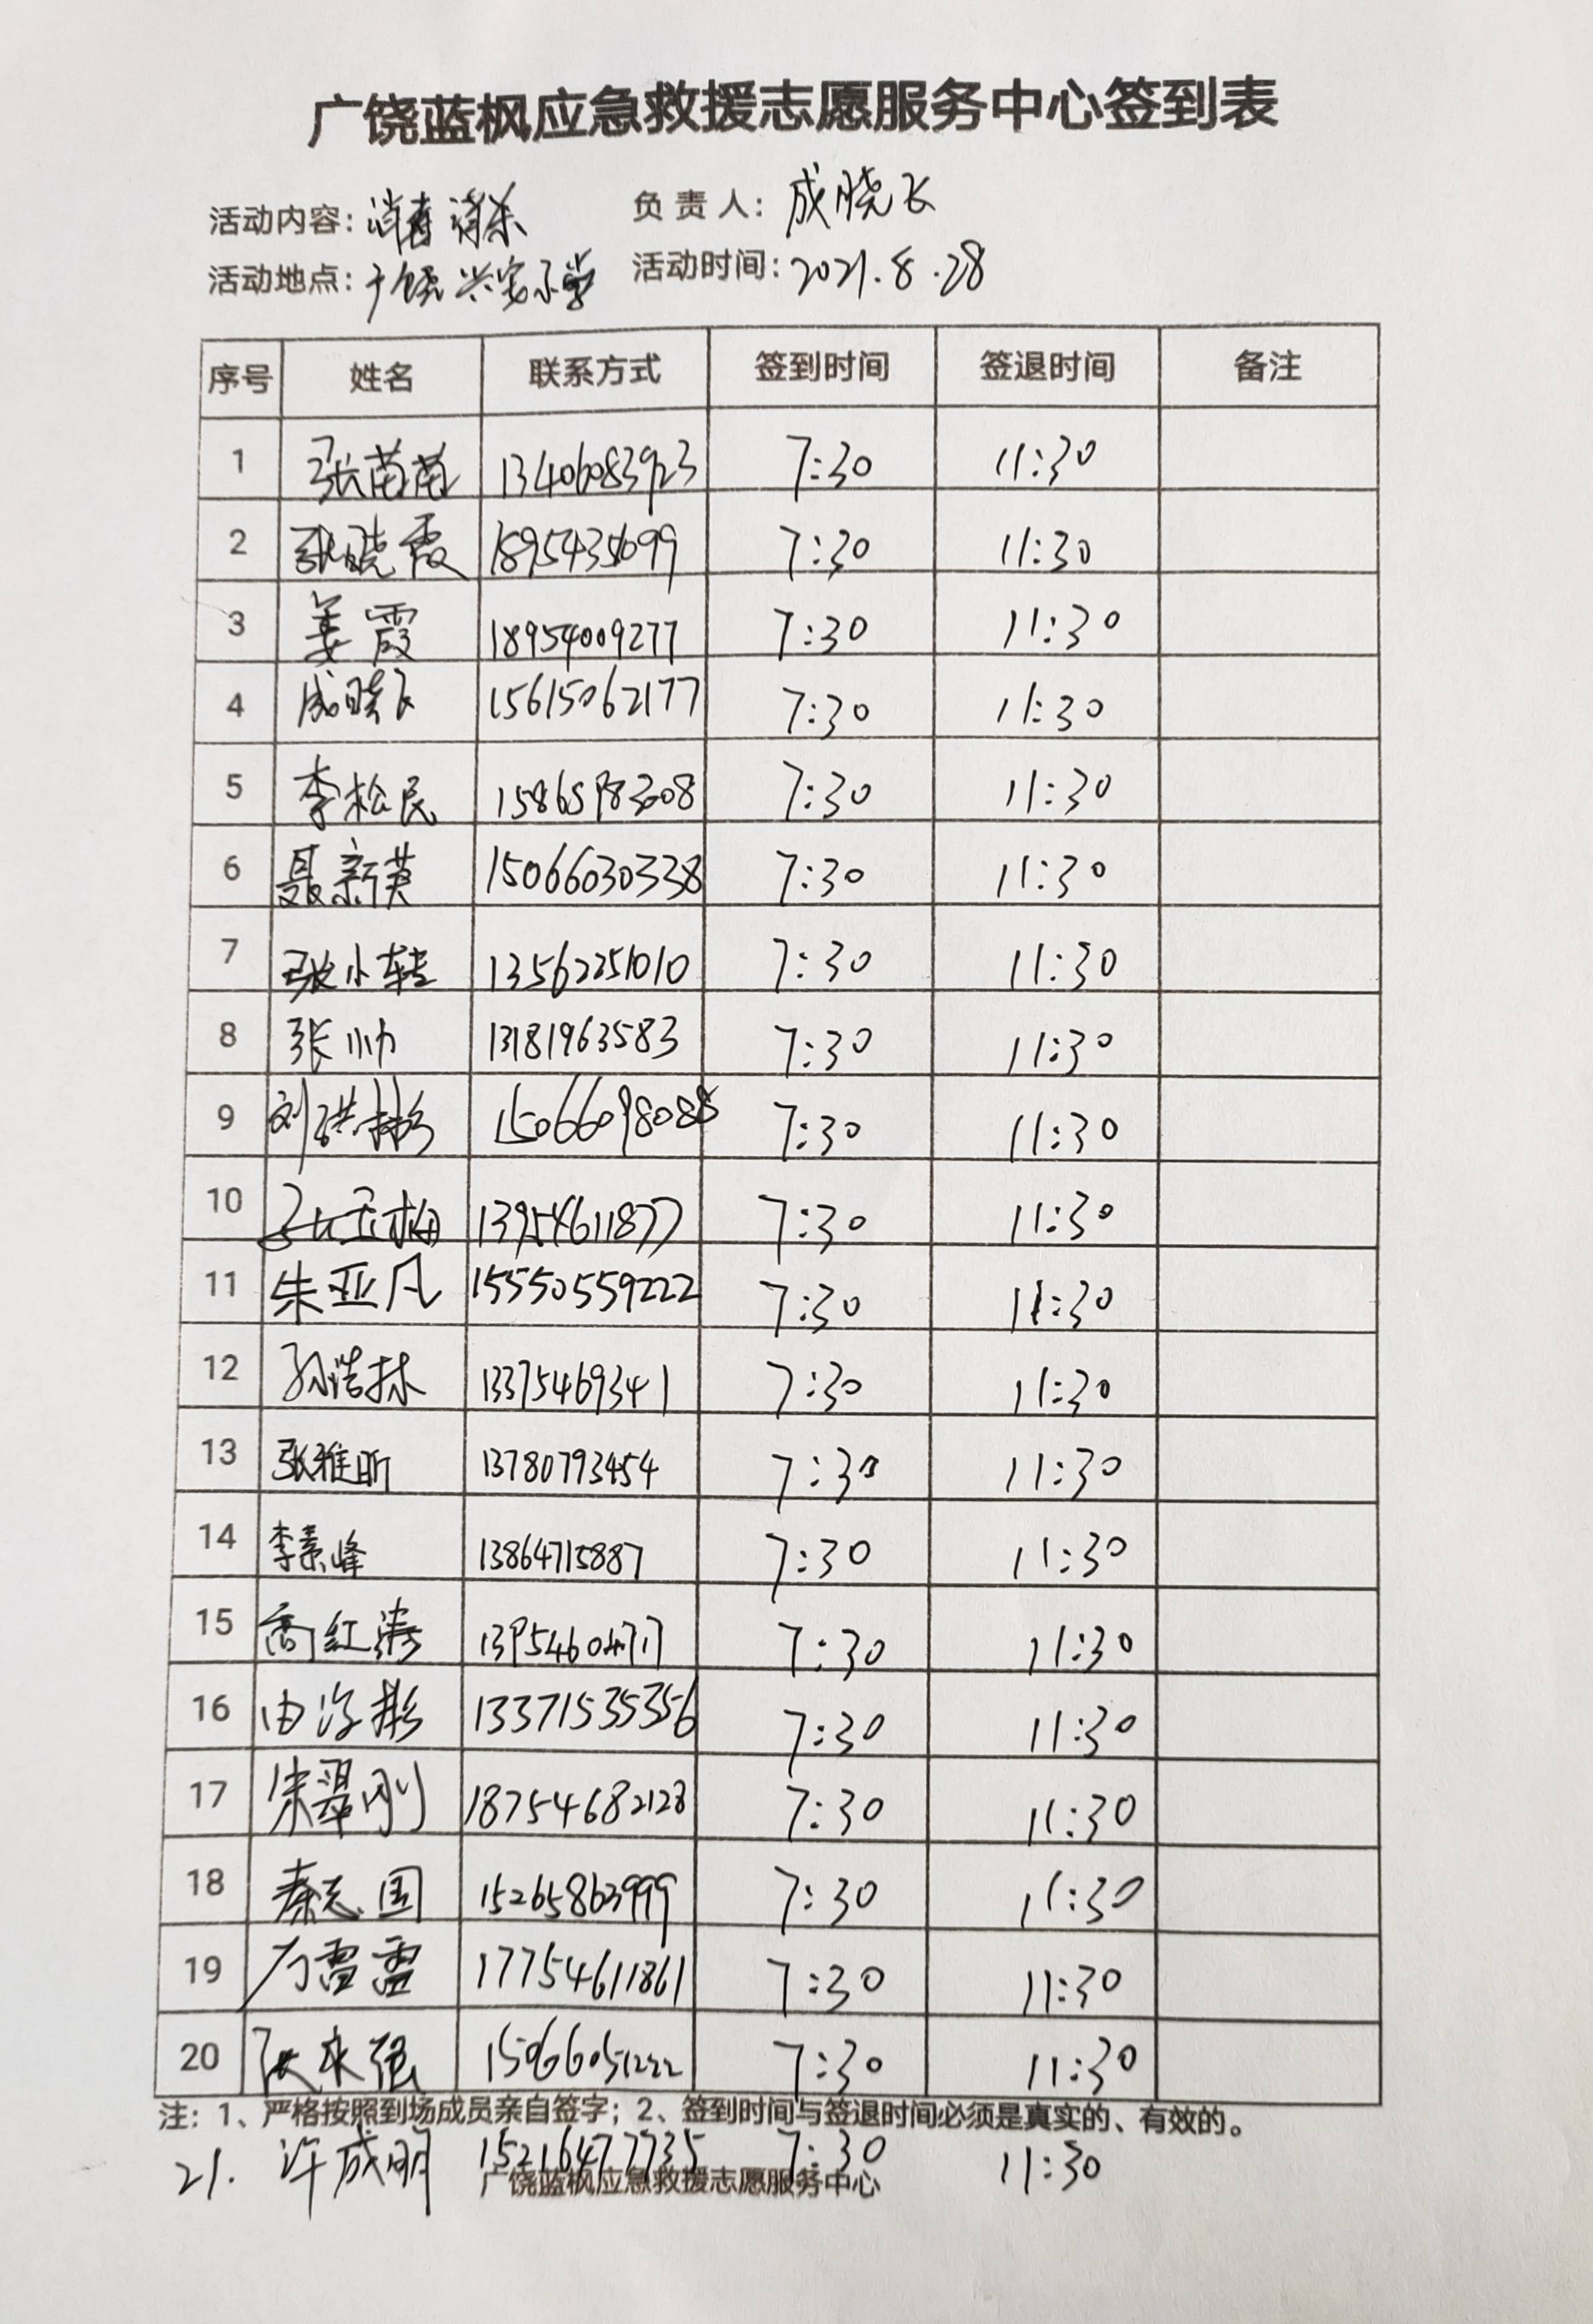 广饶蓝枫应急救援志愿服务中心签到表
活动内容：消毒消杀 负责人：成晓飞
活动地点：广饶兴安小学 活动时间：2021.8.28
序号 姓名 联系方式 签到时间 签退时间 备注
1 张苗苗 13406083923 7:30 11:30
2 张晓霞 7:30 11:30
3 姜霞 18954009277 7:30 11:30
4 成晓飞 15615062177 7:30 11:30
5 李松民 15865983008 7:30 11:30
6 聂新英 15066030338 7:30 11:30
7 张小转 13562251010 7:30 11:30
8 张帅 13181963583 7:30 11:30
9 刘洪彬 15066098088 7:30 11:30
10 13954611877 7:30 11:30
11 朱亚凡 15550559222 7:30 11:30
12 孙浩林 13375469341 7:30 11:30
13 张雅昕 13780793454 7:30 11:30
14 李素峰 13864715887 7:30 11:30
15 高红涛 13954604717 7:30 11:30
16 13371535356 7:30 11:30
17 18754682128 7:30 11:30
18 秦志国 15265863999 7:30 11:30
19 17754611861 7:30 11:30
20 15066051222 7:30 11:30
注：1、严格按照到场成员亲自签字；2、签到时间与签退时间必须是真实的、有效的。
21. 许成明 15216477735 7:30 11:30
广饶蓝枫应急救援志愿服务中心